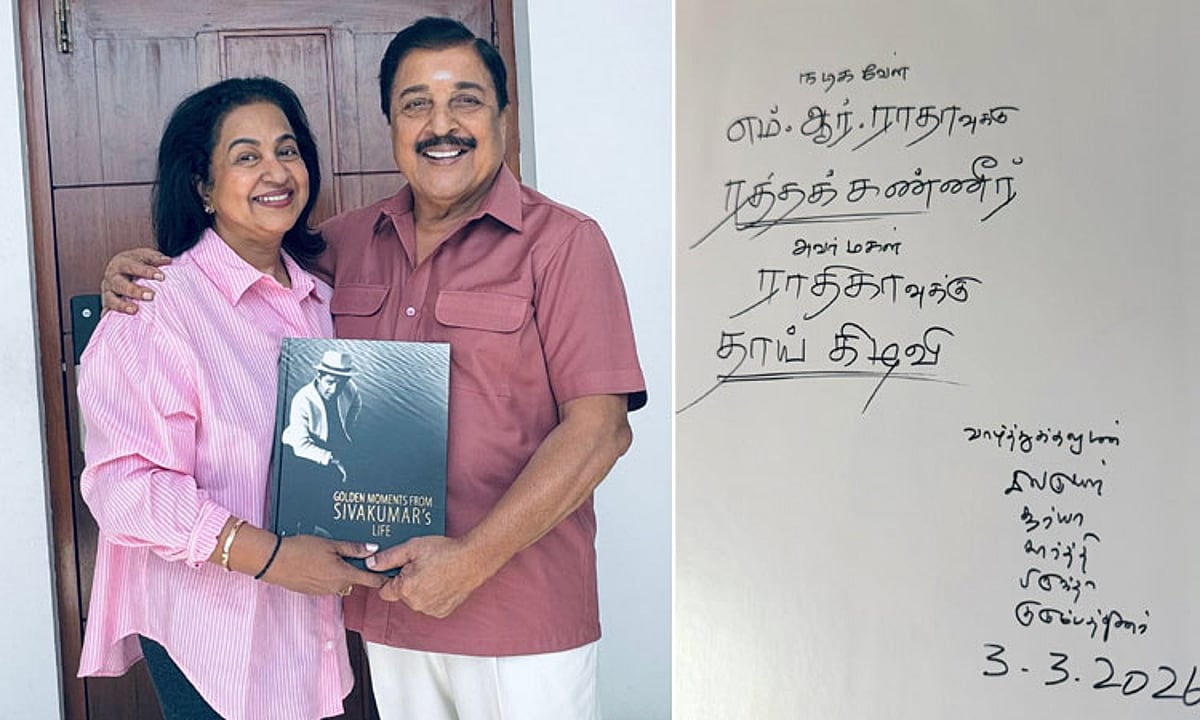 GOLDEN MOMENTS FROM
SIVAKUMAR's
LIFE
நடிக வேள்
எம்.ஆர்.ராதாவுக்கு
ரத்தக் கண்ணீர்
அவர் மகள்
ராதிகாவுக்கு
தாய் கிழவி
வாழ்த்துக்களுடன்
சிவகுமார்
சூர்யா
கார்த்தி
பிருந்தா
குடும்பத்தினர்
3.3.2026